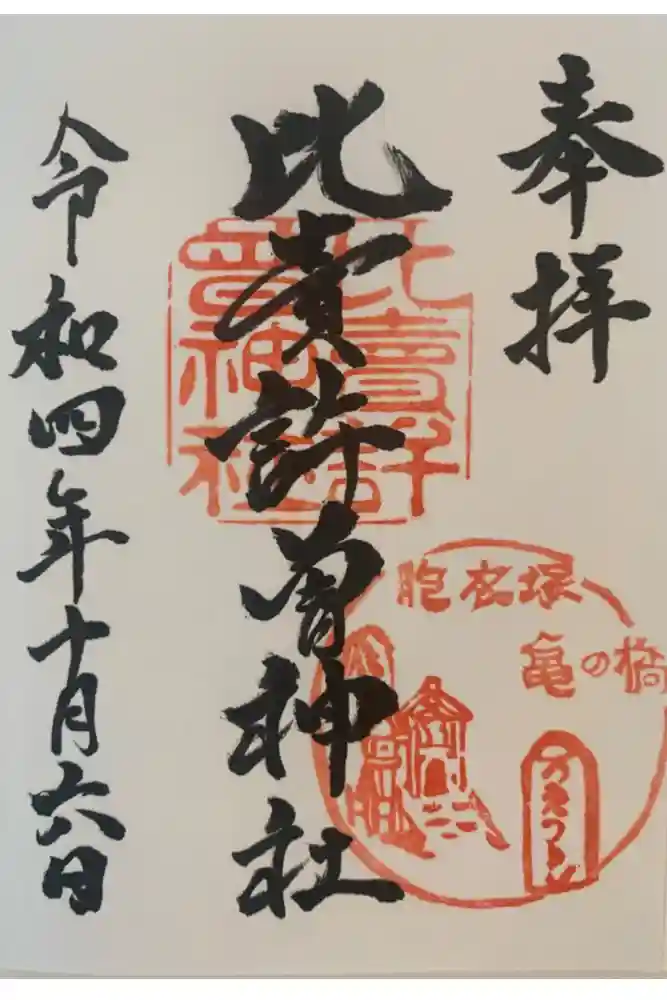 奉拝
比賣許曽神社
令和四年十月六日
比賣許
曽神社
胞衣塚
亀の橋